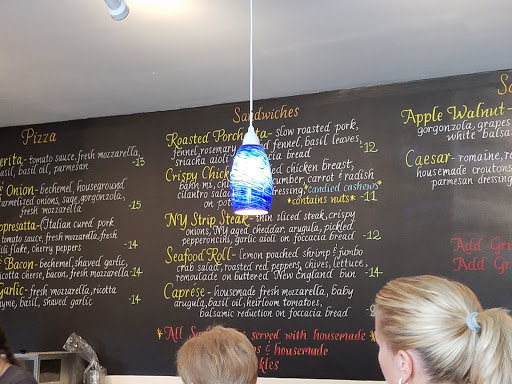 Pizza
tomato sauce, fresh mozzarella,
basil, basil oil, parmesan -13
Onion - bechemel, houseground
onions, sage, gorgonzola,
fresh mozzarella -14
(Italian cured pork
tomato sauce, fresh mozzarella, fresh
flake, cherry peppers -14
Bacon - bechemel, shaved garlic,
ricotta cheese, bacon, fresh mozzarella -14
Garlic - fresh mozzarella, ricotta
basil, shaved garlic -14
Sandwiches
Roasted - slow roasted pork,
fennel, rosemary fennel, basil leaves,
sriracha aioli bread -12
Crispy chicken breast,
cucumber, carrot & radish
cilantro dressing *candied cashews*
on *contains nuts* -11
NY Strip Steak - thin sliced steak, crispy
onions, NY aged cheddar, arugula, pickled
pepperoncini, garlic aioli on focaccia bread -12
Seafood Roll - lemon poached shrimp & jumbo
crab salad, roasted red peppers, chives, lettuce,
remoulade on buttered New England bun -14
Caprese - housemade fresh mozzarella, baby
arugula, basil oil, heirloom tomatoes,
balsamic reduction on focaccia bread
*All served with housemade *
& housemade
Apple Walnut -
gorgonzola, grapes
white
Caesar - romaine,
housemade croutons
parmesan dressing
Add
Add